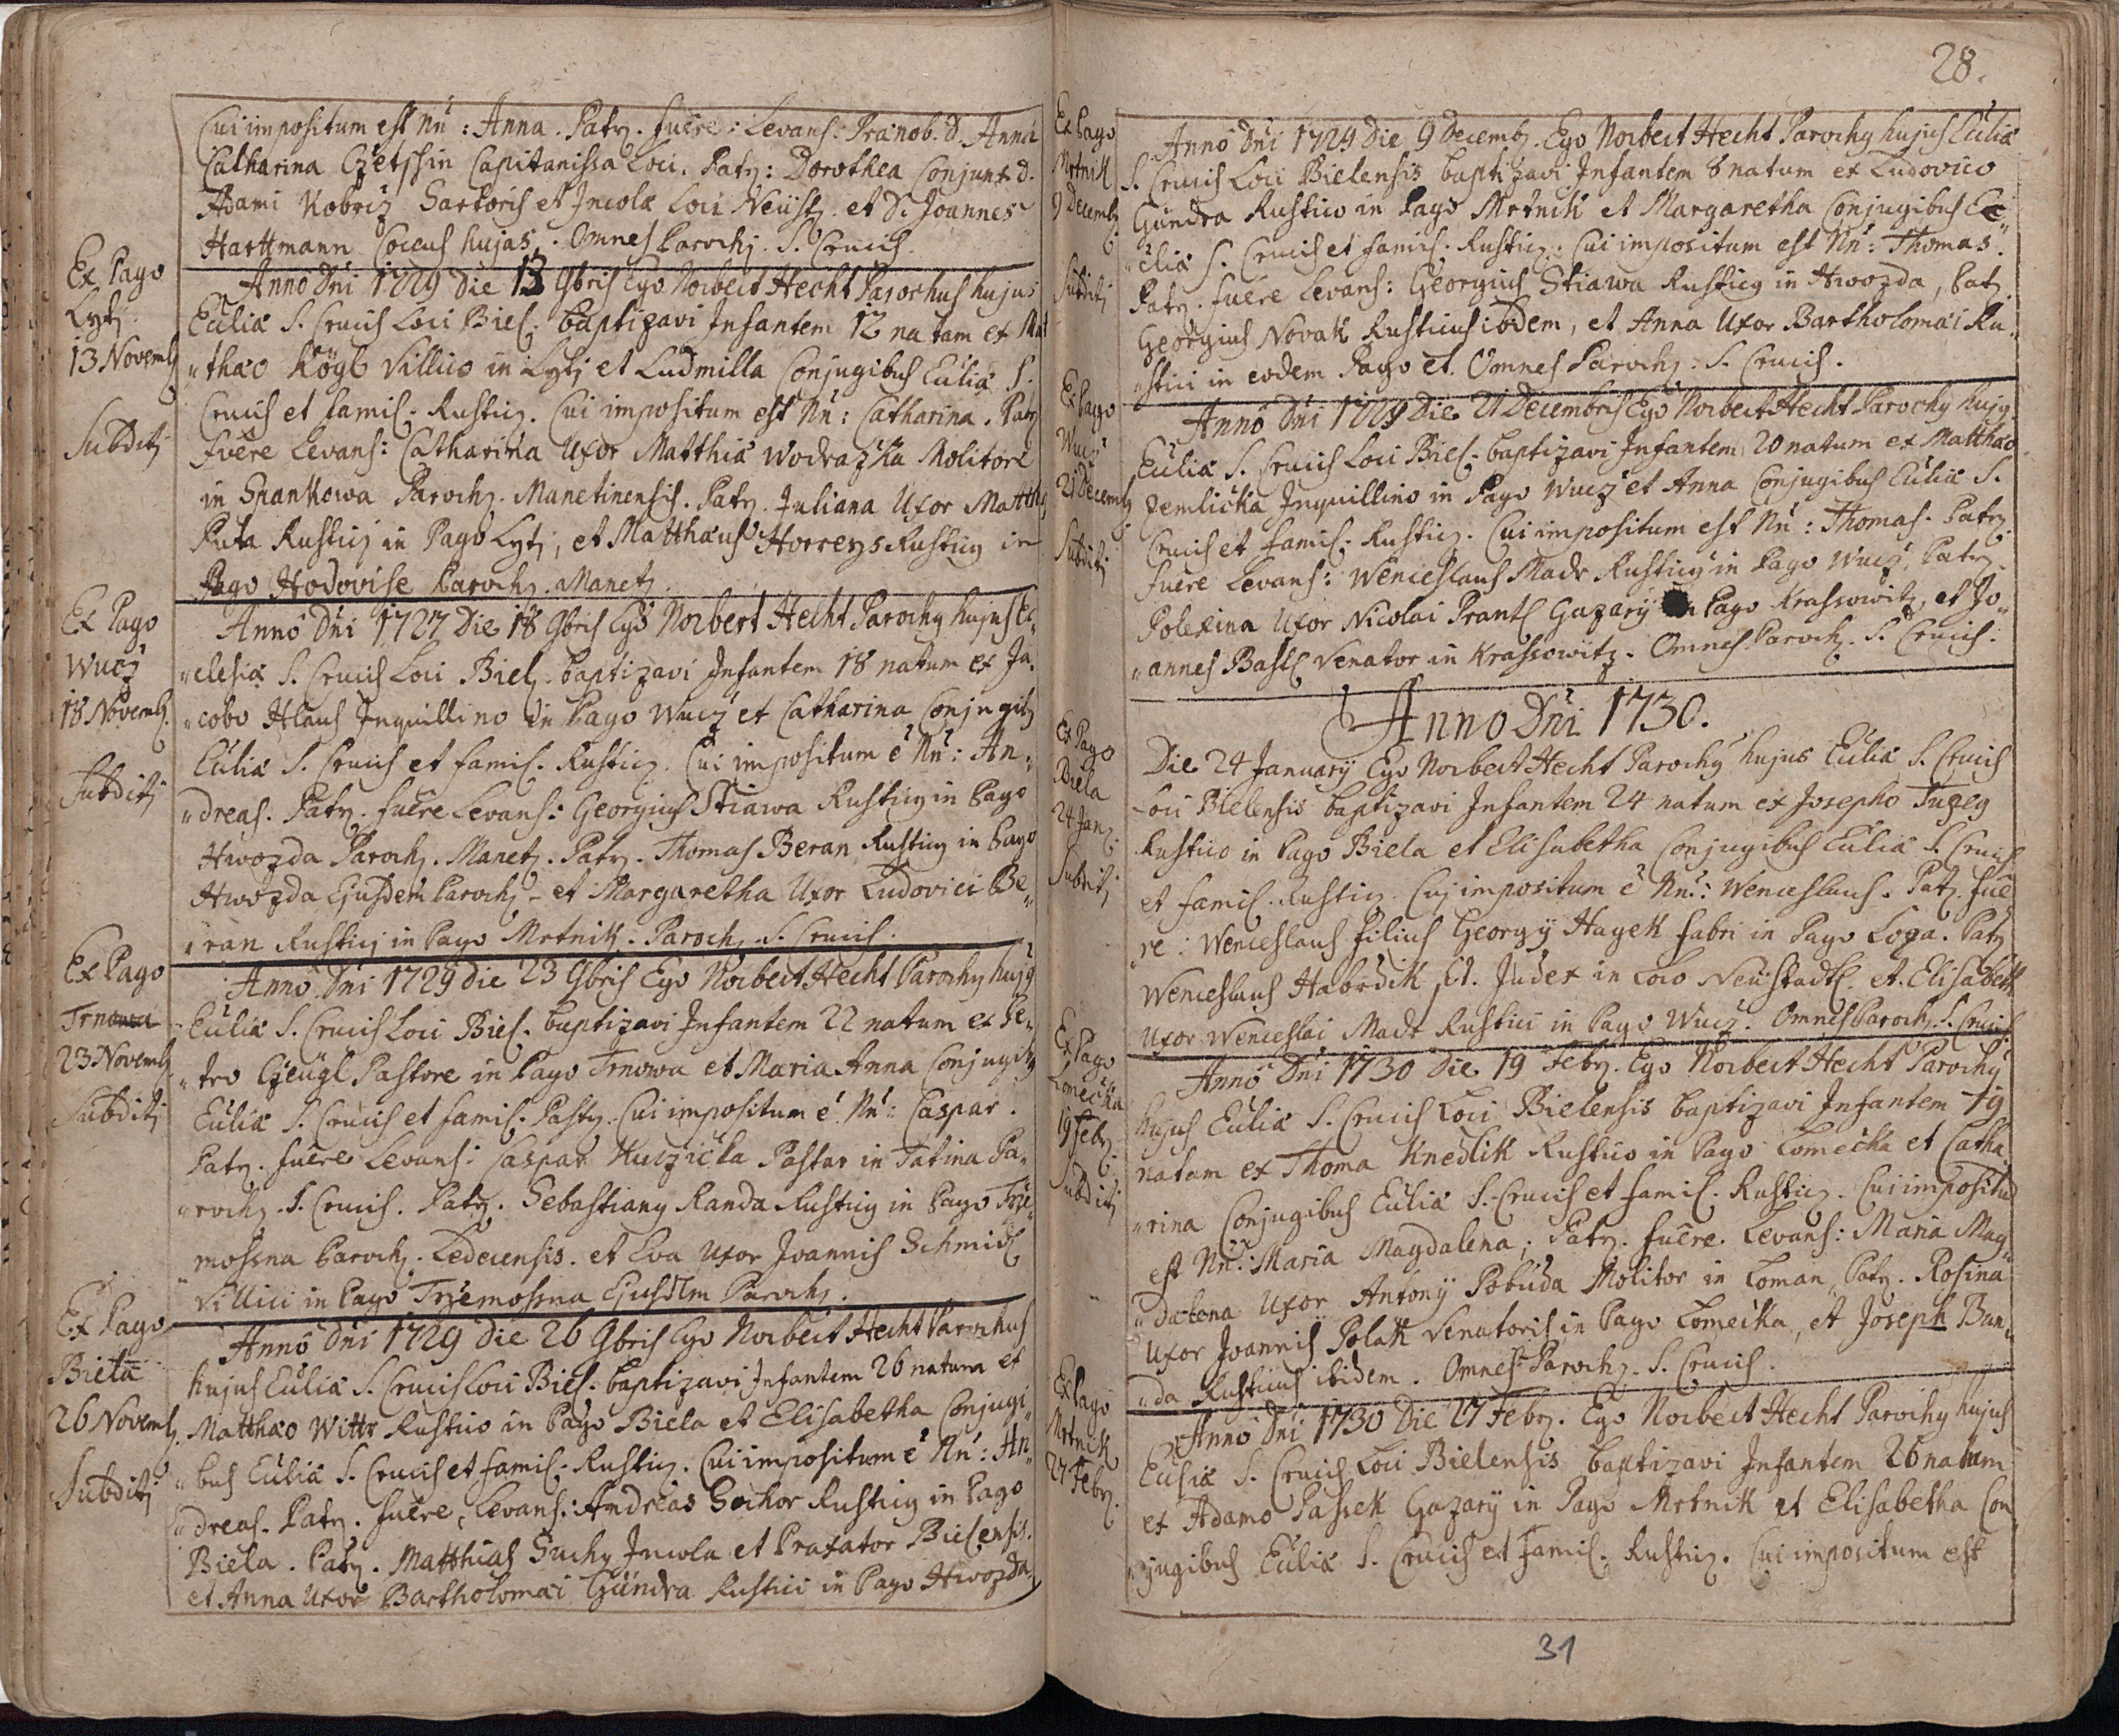 Cui impositum est Nn̄: Anna. Patr. fuere: Levans: Prænob. D. Anna
Catharina Czetschin Capitanissa Loci. Patr: Dorothea Conjunx D.
Adami Kobriz Sartoris et Incolæ Loci Neüst. et D. Joannes
Harttmann Cocus hujas. Omnes Paroch. S. Crucis.
Ex Pago
Lytj
13 Novemb
Subditj
Anno Dni 1729 Die 13 9bris Ego Norbert Hecht Parochus hujus
Ecliæ S. Crucis Loci Biel. baptizavi Infantem 12 natam ex Mat
„thæo Kögl Villico in Lytj et Ludmilla Conjugibus Ecliæ S.
Crucis et famil. Rustic. Cui impositum est Nn̄: Catharina. Patr
fuere Levans: Catharina Uxor Matthiæ Wodrazka Molitore
in Spankowa Paroch. Manetinensis. Patr. Juliana Uxor Matthj
Puta Rusticj in Pago Lytj, et Matthæus Horreys Rusticq in
Pago Hodovise Paroch. Manet.
Ex Pago
Wucz
18 Novemb.
Subditj
Anno Dni 1727 Die 18 9bris Ego Norbert Hecht Parochq hujus Ec„
„clesiæ S. Crucis Loci Biel. baptizavi Infantem 18 natum ex Ja„
„cobo Hlaus Inquillino in Pago Wucz et Catharina Conjugib
Ecliæ S. Crucis et famil. Rustic. Cui impositum ē Nn̄: An„
„dreas. Patr. fuere Levans: Georgius Stiawa Rusticq in Pago
Hwozda Paroch. Manet. Patr. Thomas Beran Rusticq in Pago
Hwozda Ejusdem Paroch. et Margaretha Uxor Ludovici Be„
„ran Rusticj in Pago Mrtnik. Paroch. S. Crucis.
Ex Pago
Trnowa
23 Novemb
Subditj
Anno Dni 1729 die 23 9bris Ego Norbert Hecht Parochq hujq
Ecliæ S. Crucis Loci Biel. baptizavi Infantem 22 natum ex Pe„
„tro Czeügl Pastore in Pago Trnowa et Maria Anna Conjugib
Ecliæ S. Crucis et famil. Past. Cui impositum ē Nn̄: Caspar.
Patr. fuere Levans: Caspar Kuczicka Pastor in Tatina Pa„
„roch. S. Crucis. Patr. Sebastianq Randa Rusticq in Pago Trze„
„mossna Paroch. Ledecensis. et Eva Uxor Joannis Schmidl
Villici in Pago Trzemossna Ejusdem Paroch.
Ex Pago
Biela
26 Novemb.
Subditj
Anno Dni 1729 Die 26 9bris Ego Norbert Hecht Parochus
hujus Ecliæ S. Crucis Loci Biel. baptizavi Infantem 26 natum ex
Matthæo Wittr Rustico in Pago Biela et Elisabetha Conjugi„
„bus Ecliæ S. Crucis et famil. Rustic. Cui impositum ē Nn̄: An„
„dreas. Patr. fuere, Levans: Andreas Sochor Rusticq in Pago
Biela. Patr. Matthias Suchy Incola et Præfator Bielensis.
et Anna Uxor Bartholomæi Gündra Rustici in Pago Hwozda
28.
Ex Pago
Mrtnik
9 Decemb
Subditj
Anno Dni 1729 Die 9 Decemb. Ego Norbert Hecht Parochq hujus Ecliæ
S. Crucis Loci Bielensis baptizavi Infantem 8 natum ex Ludovico
Gündra Rustico in Pago Mrtnik et Margaretha Conjugibus Ec„
„cliæ S. Crucis et famil. Rustic. Cui impositum est Nn̄: Thomas.
Patr. fuere Levans: Georgius Stiawa Rusticq in Hwozda, Patr
Georgius Novak Rusticus ibidem, et Anna Uxor Bartholomæi Ru„
„stici in eodem Pago et. Omnes Paroch. S. Crucis.
Ex Pago
Wucz
21 Decemb
Subditj
Anno Dni 1729 Die 21 Decembris Ego Norbert Hecht Parochq hujq
Ecliæ S. Crucis Loci Biel. baptizavi Infantem 20 natum ex Matthæo
Zemlicka Inquillino in Pago Wucz et Anna Conjugibus Ecliæ S.
Crucis et famil. Rustic. Cui impositum est Nn̄: Thomas. Patr
fuere Levans: Wenceslaus Madr Rusticq in Pago Wucz, Patr.
Polexina Uxor Nicolai Prantl Gazarÿ in Pago Krassowitz, et Jo„
„annes Bastl Venator in Krassowitz. Omnes Paroch. S. Crucis.
Anno Dni 1730.
Ex Pago
Biela
24 Jan.
Subditj
Die 24 Januarÿ Ego Norbert Hecht Parochq hujus Ecliæ S. Crucis
Loci Bielensis baptizavi Infantem 24 natum ex Josepho Tuzeg
Rustico in Pago Biela et Elisabetha Conjugibus Ecliæ S. Crucis
et famil. Rustic. Cuj impositum ē Nn̄: Wenceslaus. Patr. fue„
„re: Wenceslaus filius Georgÿ Hagek fabri in Pago Loza. Patr
Wenceslaus Habrdik pt. Judex in Loco Neüstadtl. et Elisabeth
Uxor Wenceslai Madr Rustici in Pago Wucz. Omnes Paroch. S. Crucis
Ex Pago
Lomecka
19 Febr.
Subditj
Anno Dni 1730 Die 19 Febr. Ego Norbert Hecht Parochq
hujus Ecliæ S. Crucis Loci Bielensis baptizavi Infantem 19
natam ex Thoma Knedlik Rustico in Pago Lomecka et Catha„
„rina Conjugibus Ecliæ S. Crucis et famil. Rustic. Cui impositū
est Nn̄: Maria Magdalena; Patr. fuere. Levans: Maria Mag„
„dalena Uxor Antonÿ Pobuda Molitor in Loman, Patr. Rosina
Uxor Joannis Polak Venatoris in Pago Lomecka, et Joseph Bun„
„da Rusticus ibidem. Omnes Paroch. S. Crucis.
Ex Pago
Mrtnik
27 Febr.
Anno Dni 1730 Die 27 Febr. Ego Norbert Hecht Parochq hujus
Ecliæ S. Crucis Loci Bielensis baptizavi Infantem 26 natum
ex Adamo Passek Gazarÿ in Pago Mrtnik et Elisabetha Con„
„jugibus Ecliæ S. Crucis et famil. Rustic. Cui impositum est
31